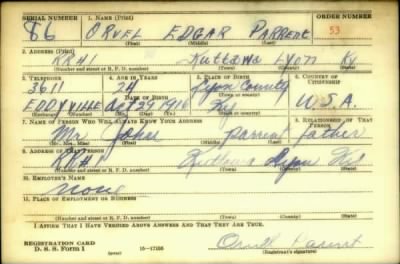 SERIAL NUMBER 1. NAME (Print) ORDER NUMBER
86 ORVEL EDGAR PARRENT 53
(First) (Middle) (Last)
2. ADDRESS (Print)
RR#1 Kuttawa Lyon Ky
(Number and street or R. F. D. number) (Town) (County) (State)
3. TELEPHONE 4. AGE IN YEARS 5. PLACE OF BIRTH 6. COUNTRY OF CITIZENSHIP
3611 24 Lyon County
DATE OF BIRTH (Town or county)
EDDYVILLE Oct 29 1916 Ky U.S.A.
(Exchange) (Number) (Mo.) (Day) (Yr.) (State or country)
7. NAME OF PERSON WHO WILL ALWAYS KNOW YOUR ADDRESS 8. RELATIONSHIP OF THAT PERSON
Mr. John Parrent father
(Mr., Mrs., Miss) (First) (Middle) (Last)
9. ADDRESS OF THAT PERSON
RR#1 Kuttawa Lyon Ky
(Number and street or R. F. D. number) (Town) (County) (State)
10. EMPLOYER'S NAME
none
11. PLACE OF EMPLOYMENT OR BUSINESS
(Number and street or R. F. D. number) (Town) (County) (State)
I AFFIRM THAT I HAVE VERIFIED ABOVE ANSWERS AND THAT THEY ARE TRUE.
REGISTRATION CARD
D. S. S. Form 1 (over) Parrent
(Registrant's signature)